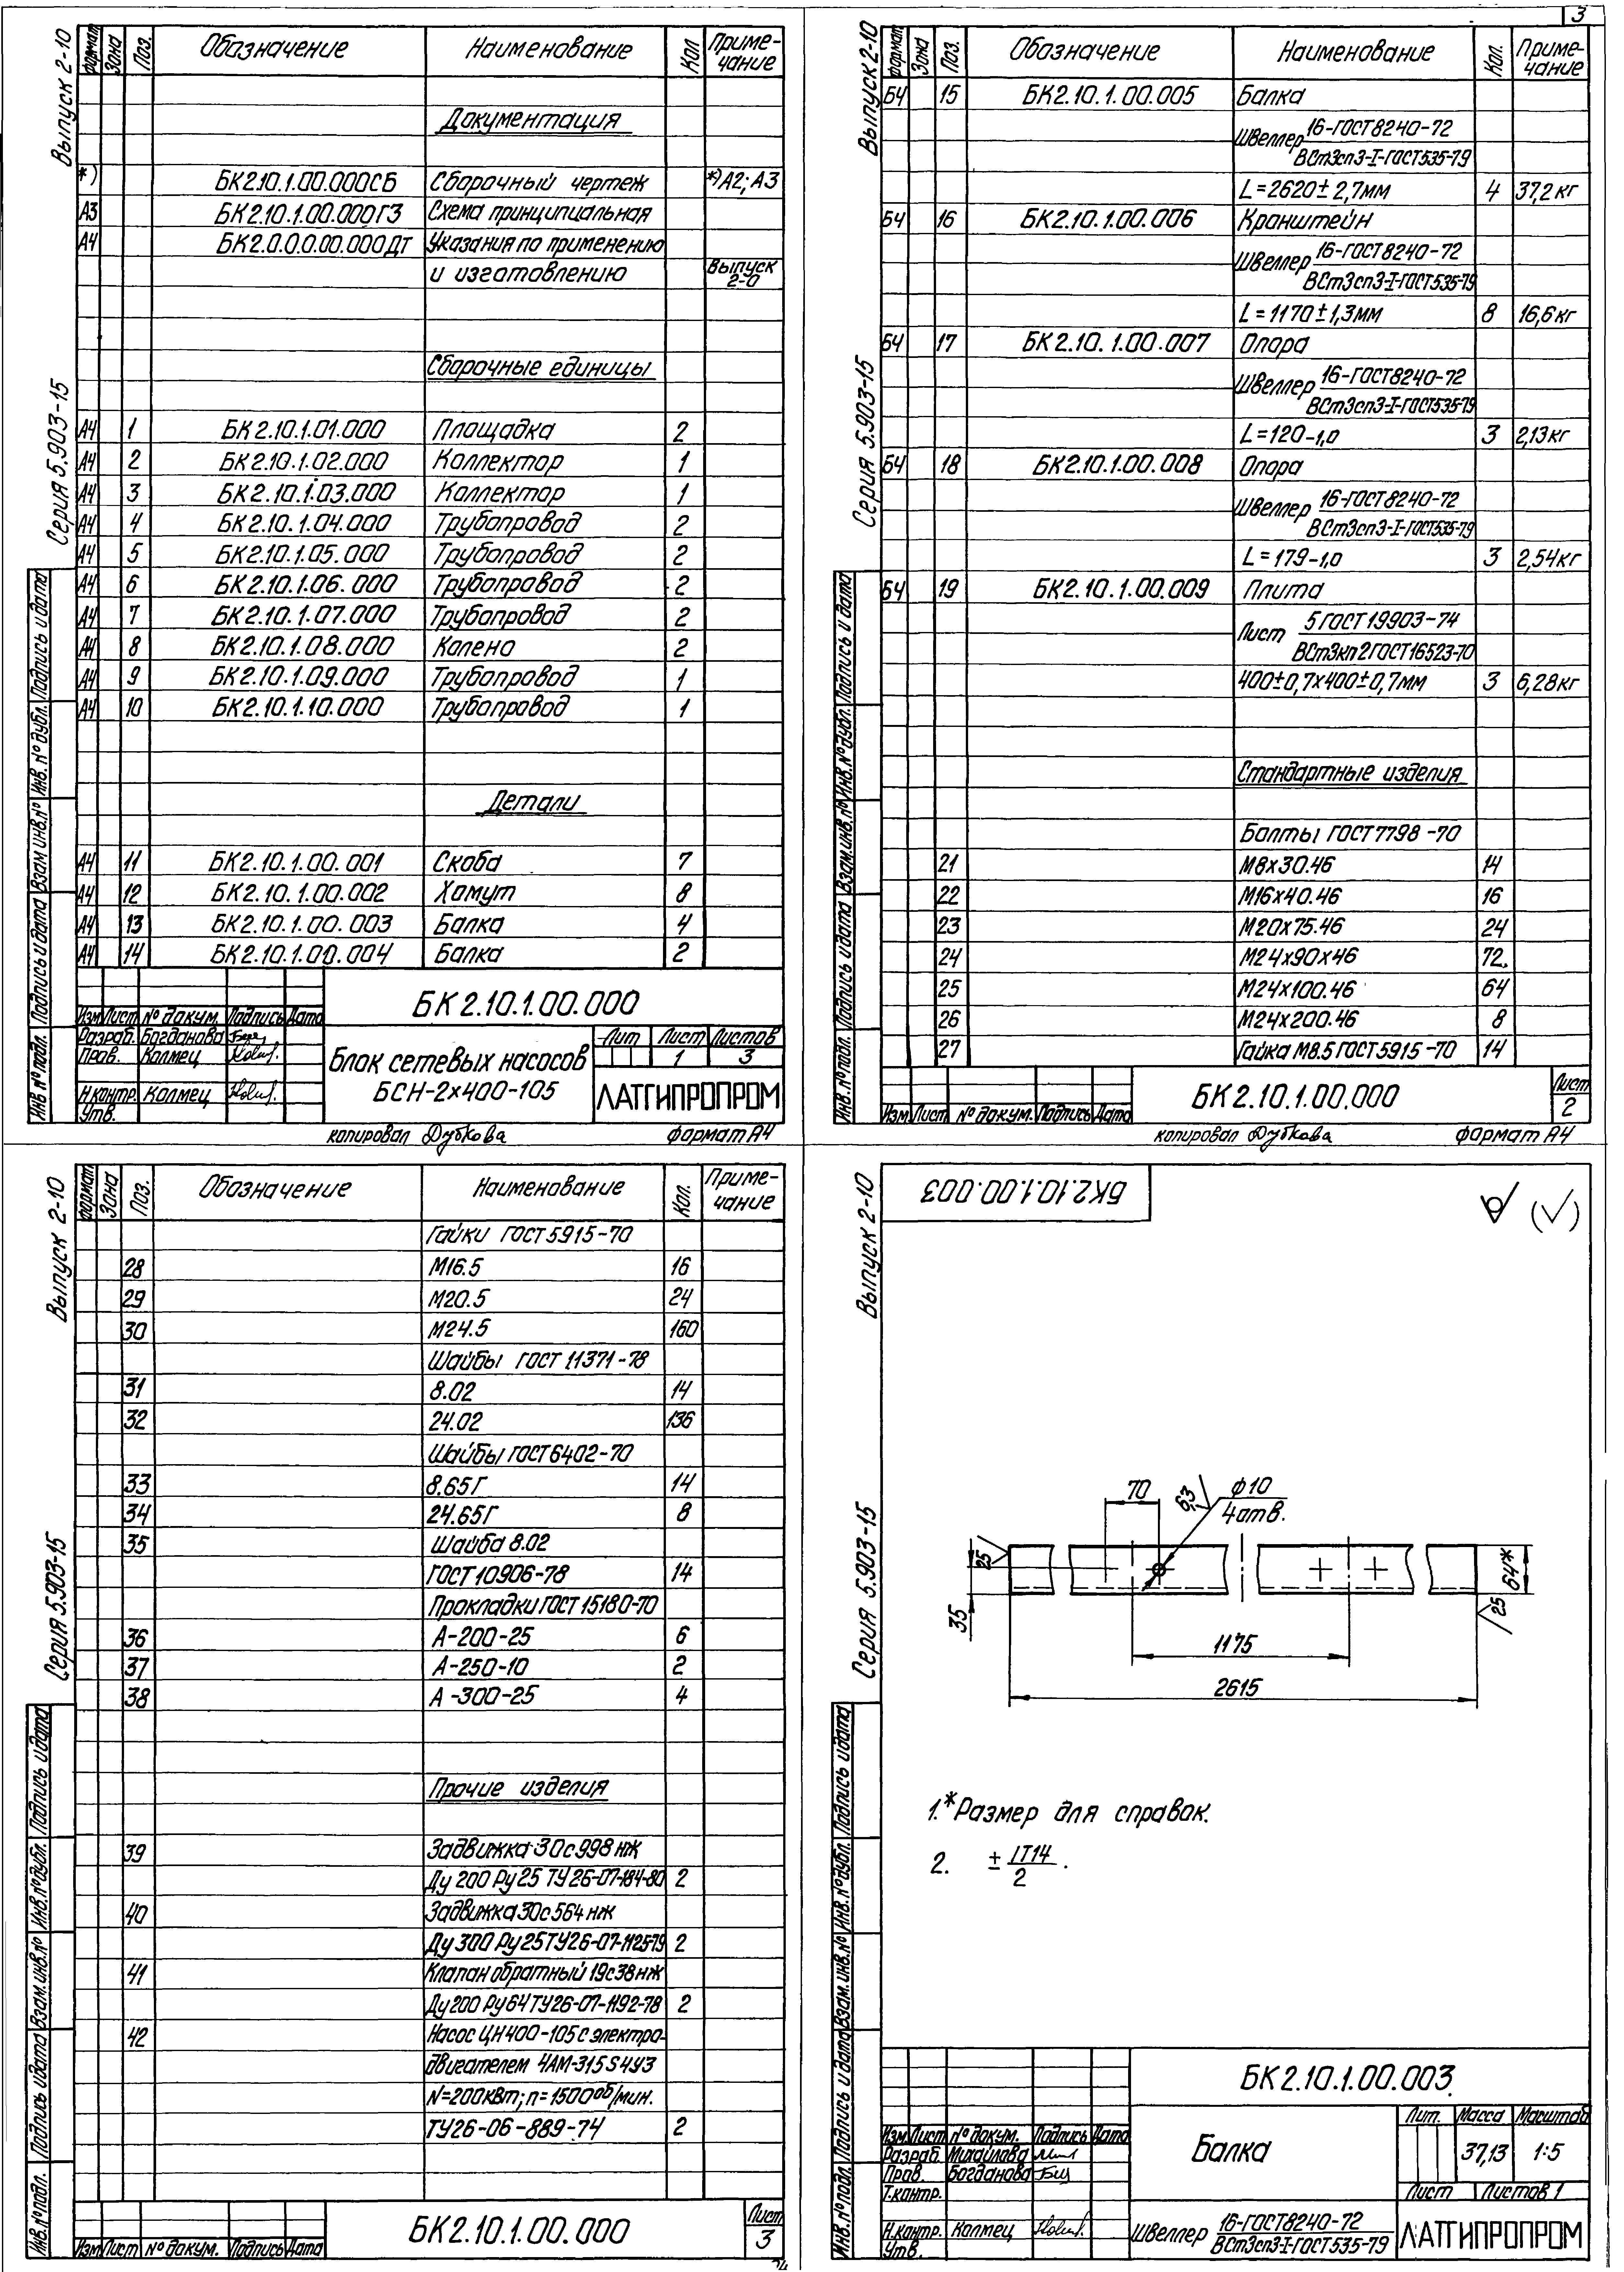 3
Выпуск 2-10
Серия 5.903-15
Формат Зона Поз. Обозначение Наименование Кол Приме-
чание
Документация
*) БК2.10.1.00.000СБ Сборочный чертеж *)А2; А3
А3 БК2.10.1.00.000Г3 Схема принципиальная
А4 БК2.0.0.0.00.000ДТ Указания по применению
и изготовлению Выпуск
2-0
Сборочные единицы
А4 1 БК2.10.1.01.000 Площадка 2
А4 2 БК2.10.1.02.000 Коллектор 1
А4 3 БК2.10.1.03.000 Коллектор 1
А4 4 БК2.10.1.04.000 Трубопровод 2
А4 5 БК2.10.1.05.000 Трубопровод 2
А4 6 БК2.10.1.06.000 Трубопровод 2
А4 7 БК2.10.1.07.000 Трубопровод 2
А4 8 БК2.10.1.08.000 Колено 2
А4 9 БК2.10.1.09.000 Трубопровод 1
А4 10 БК2.10.1.10.000 Трубопровод 1
Детали
А4 11 БК2.10.1.00.001 Скоба 7
А4 12 БК2.10.1.00.002 Хомут 8
А4 13 БК2.10.1.00.003 Балка 4
А4 14 БК2.10.1.00.004 Балка 2
Инв. № подл. Подпись и дата Взам. инв. № Инв. № дубл. Подпись и дата
БК2.10.1.00.000
Изм Лист № докум. Подпись Дата
Разраб. Богданова
Пров. Колмец
Н.контр. Колмец
Утв.
Блок сетевых насосов
БСН-2х400-105
Лит Лист Листов
1 3
ЛАТГИПРОПРОМ
копировал Дубкова формат А4
Выпуск 2-10
Серия 5.903-15
Формат Зона Поз. Обозначение Наименование Кол. Приме-
чание
БЧ 15 БК2.10.1.00.005 Балка
Швеллер 16-ГОСТ8240-72
ВСт3сп3-I-ГОСТ535-79
L=2620±2,7мм 4 37,2кг
БЧ 16 БК2.10.1.00.006 Кранштейн
Швеллер 16-ГОСТ8240-72
ВСт3сп3-I-ГОСТ535-79
L=1170±1,3мм 8 16,6кг
БЧ 17 БК2.10.1.00.007 Опора
Швеллер 16-ГОСТ8240-72
ВСт3сп3-I-ГОСТ535-79
L=120-1,0 3 2,13кг
БЧ 18 БК2.10.1.00.008 Опора
Швеллер 16-ГОСТ8240-72
ВСт3сп3-I-ГОСТ535-79
L=179-1,0 3 2,54кг
БЧ 19 БК2.10.1.00.009 Плита
Лист 5ГОСТ19903-74
ВСт3кп2ГОСТ16523-70
400±0,7х400±0,7мм 3 6,28кг
Стандартные изделия
Болты ГОСТ7798-70
21 М8х30.46 14
22 М16х40.46 16
23 М20х75.46 24
24 М24х90х46 72
25 М24х100.46 64
26 М24х200.46 8
27 Гайка М8.5 ГОСТ5915-70 14
Инв. № подл. Подпись и дата Взам. инв. № Инв. № дубл. Подпись и дата
Изм Лист № докум. Подпись Дата
БК2.10.1.00.000
Лист
2
копировал Дубкова формат А4
Выпуск 2-10
Серия 5.903-15
Формат Зона Поз. Обозначение Наименование Кол. Приме-
чание
Гайки ГОСТ5915-70
28 М16.5 16
29 М20.5 24
30 М24.5 160
Шайбы ГОСТ 11371-78
31 8.02 14
32 24.02 136
Шайбы ГОСТ6402-70
33 8.65Г 14
34 24.65Г 8
35 Шайба 8.02
ГОСТ10906-78 14
Прокладки ГОСТ 15180-70
36 А-200-25 6
37 А-250-10 2
38 А-300-25 4
Прочие изделия
39 Задвижка 30с998нж
Ду 200 Ру25 ТУ26-07-184-80 2
40 Задвижка 30с564нж
Ду 300 Ру25ТУ26-07-1125-79 2
41 Клапан обратный 19с38нж
Ду200 Ру64ТУ26-07-1192-78 2
42 Насос ЦН400-105 с электро-
двигателем 4АМ-315S4У3
N=200кВт; n=1500об/мин.
ТУ26-06-889-74 2
Инв. № подл. Подпись и дата Взам. инв. № Инв. № дубл. Подпись и дата
Изм Лист № докум. Подпись Дата
БК2.10.1.00.000
Лист
3
Выпуск 2-10
Серия 5.903-15
БК2.10.1.00.003
(√)
70
6,3
ф10
4отв.
25
35
64*
25
1175
2615
1.*Размер для справок.
2. ± IT14
2 .
Инв. № подл. Подпись и дата Взам. инв. № Инв. № дубл. Подпись и дата
БК2.10.1.00.003
Изм Лист № докум. Подпись Дата
Разраб. Михайлова
Пров. Богданова
Т.контр.
Н.контр. Колмец
Утв.
Балка
Лит. Масса Масштаб
37,13 1:5
Лист Листов 1
Швеллер 16-ГОСТ8240-72
ВСт3сп3-I-ГОСТ535-79
ЛАТГИПРОПРОМ